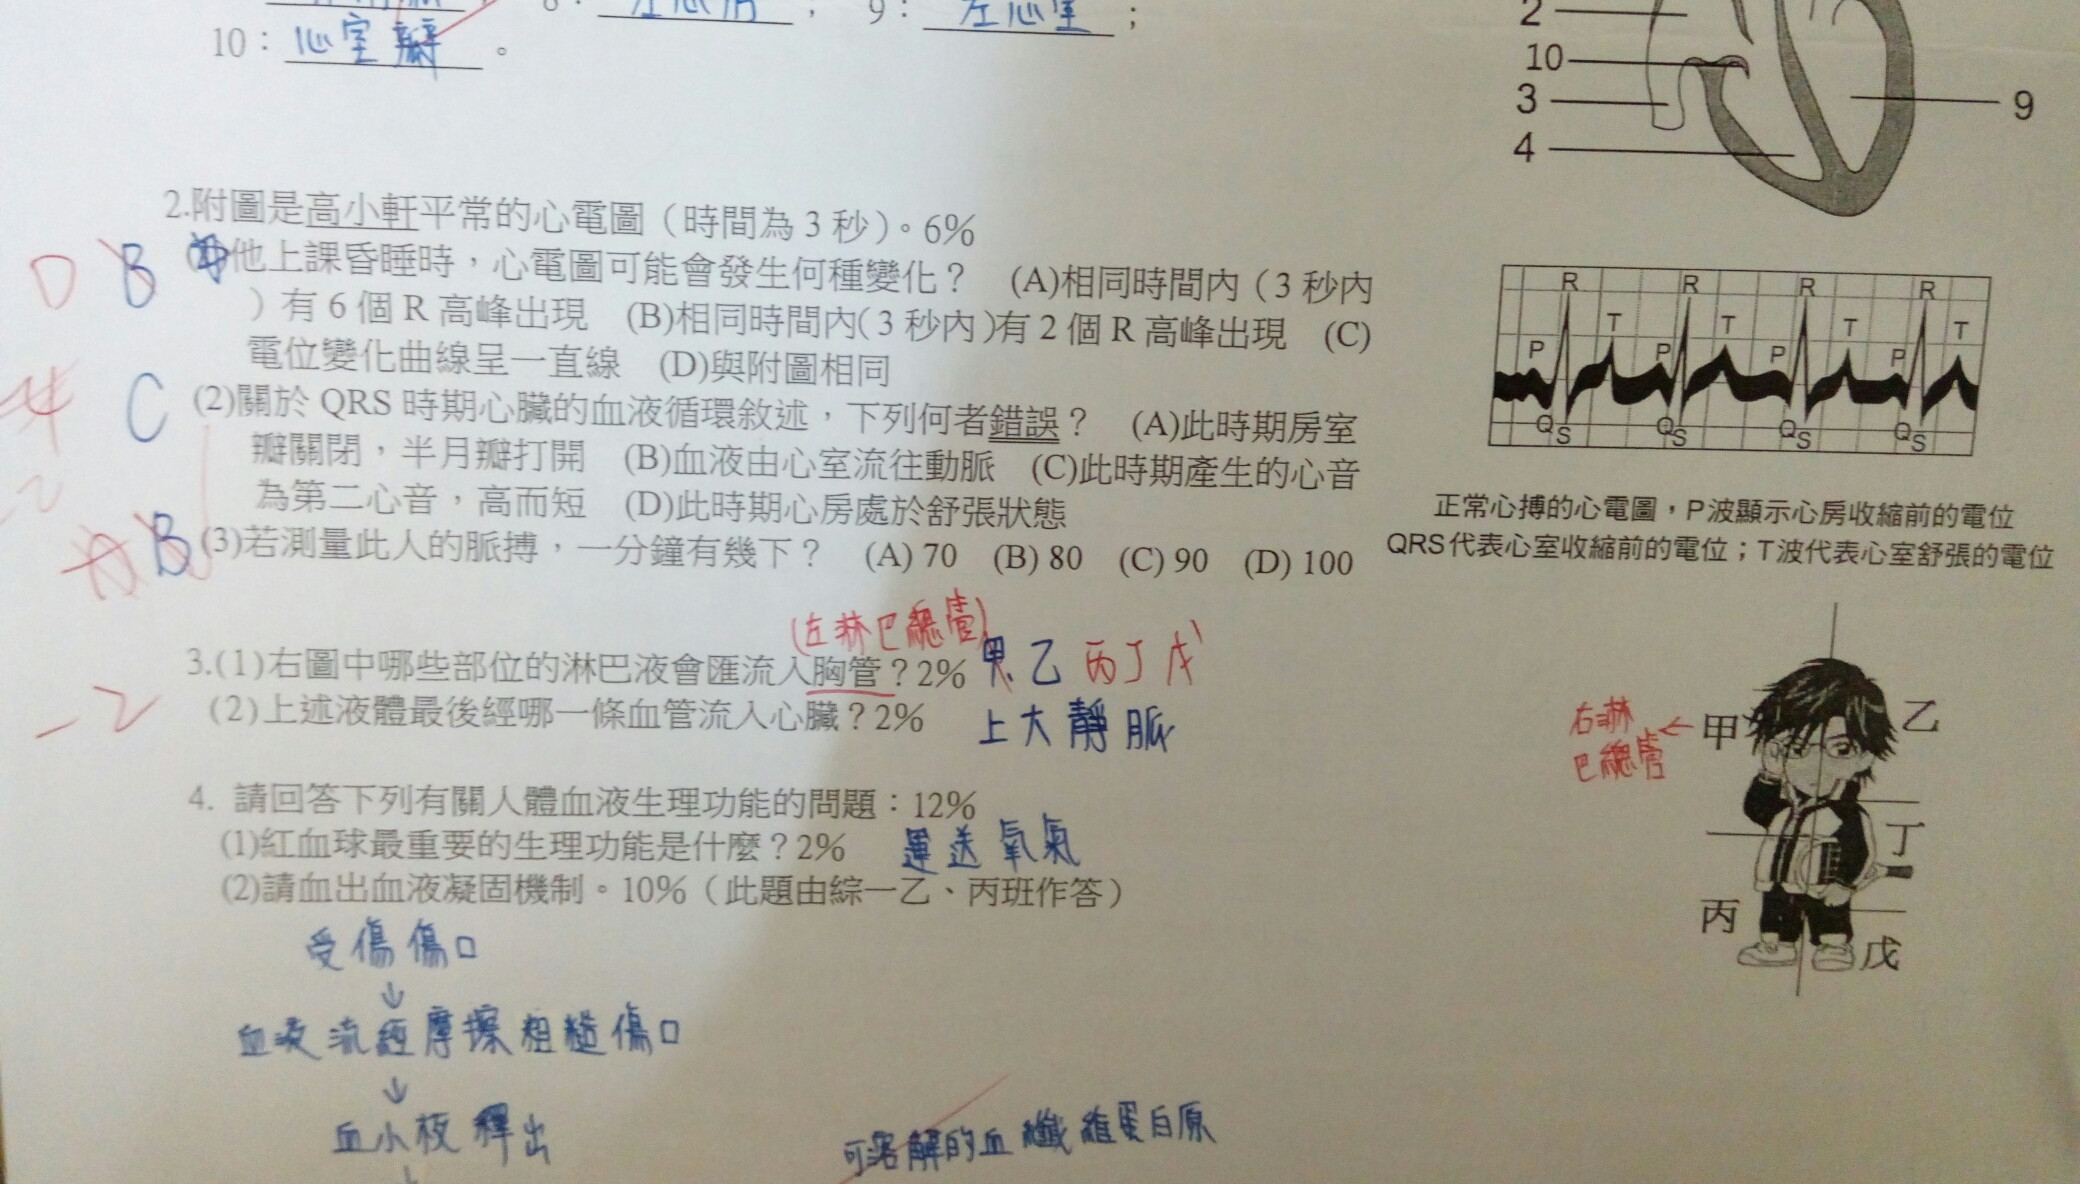 8： 左心房 ； 9： 左心室 ；
10： 心室瓣 。
2
10
3
4
9
2.附圖是高小軒平常的心電圖（時間為 3 秒）。6%
D B 他上課昏睡時，心電圖可能會發生何種變化？ (A)相同時間內（3 秒內
）有 6 個 R 高峰出現 (B)相同時間內(3 秒內)有 2 個 R 高峰出現 (C)
電位變化曲線呈一直線 (D)與附圖相同
C (2)關於 QRS 時期心臟的血液循環敘述，下列何者錯誤？ (A)此時期房室
瓣關閉，半月瓣打開 (B)血液由心室流往動脈 (C)此時期產生的心音
為第二心音，高而短 (D)此時期心房處於舒張狀態
B (3)若測量此人的脈搏，一分鐘有幾下？ (A) 70 (B) 80 (C) 90 (D) 100
R R R R
T T T T
P P P P
Q S Q S Q S Q S
正常心搏的心電圖，P波顯示心房收縮前的電位
QRS代表心室收縮前的電位；T波代表心室舒張的電位
(左淋巴總管)
3.(1)右圖中哪些部位的淋巴液會匯流入胸管？2% 乙 丙 丁 戊
-2 (2)上述液體最後經哪一條血管流入心臟？2% 上大靜脈
右淋
巴總管
← 甲 乙
丁
丙
戊
4. 請回答下列有關人體血液生理功能的問題：12%
(1)紅血球最重要的生理功能是什麼？2% 運送氧氣
(2)請血出血液凝固機制。10%（此題由綜一乙、丙班作答）
受傷傷口
↓
血液流經摩擦粗糙傷口
↓
血小板釋出
可溶解的血纖維蛋白原